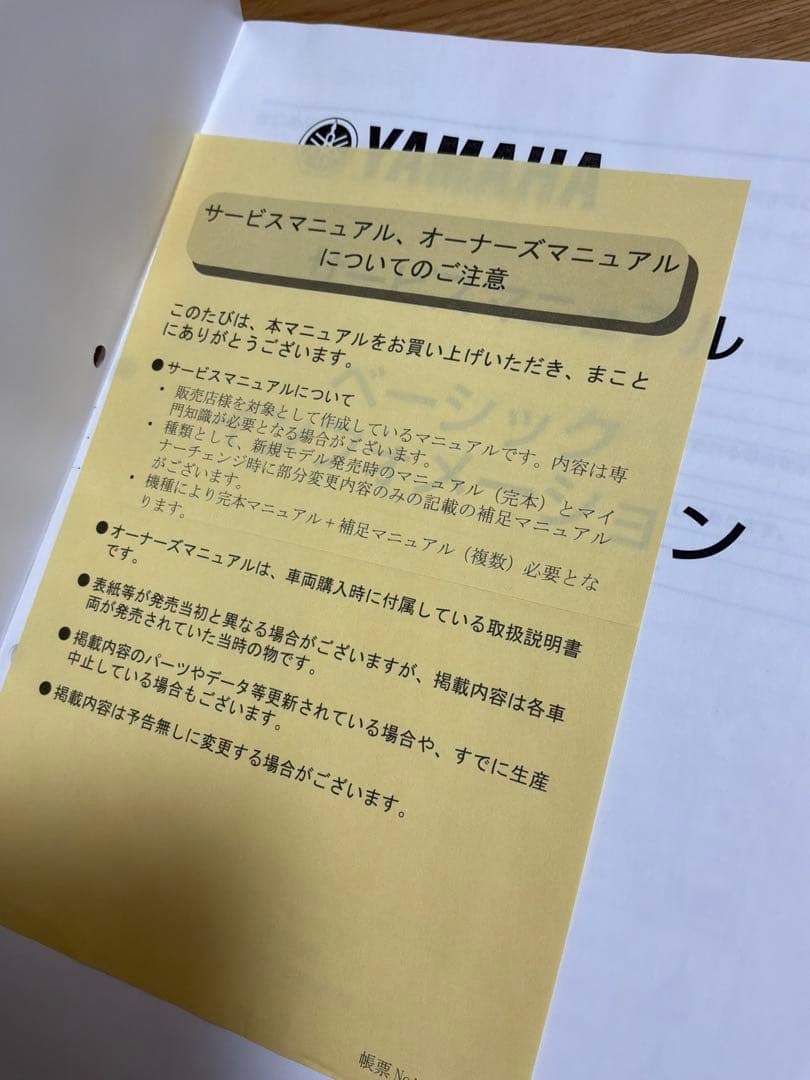 YAMAHA
サービスマニュアル、オーナーズマニュアル
についてのご注意
このたびは、本マニュアルをお買い上げいただき、まこと
にありがとうございます。
●サービスマニュアルについて
・販売店様を対象として作成しているマニュアルです。内容は専
門知識が必要となる場合がございます。
・種類として、新規モデル発売時のマニュアル（完本）とマイ
ナーチェンジ時に部分変更内容のみの記載の補足マニュアル
がございます。
・機種により完本マニュアル＋補足マニュアル（複数）必要とな
ります。
●オーナーズマニュアルは、車両購入時に付属している取扱説明書
です。
●表紙等が発売当初と異なる場合がございますが、掲載内容は各車
両が発売されていた当時の物です。
●掲載内容のパーツやデータ等更新されている場合や、すでに生産
中止している場合もございます。
●掲載内容は予告無しに変更する場合がございます。
帳票
ル
ベーシック
ン